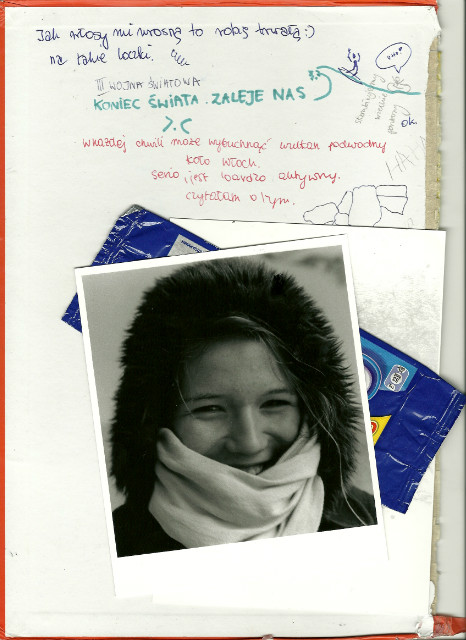 Jak włosy mi urosną to robię trwałą :)
na takie loczki.
III WOJNA ŚWIATOWA
KONIEC ŚWIATA. ZALEJE NAS
>.<
w każdej chwili może wybuchnąć wulkan podwodny
koło Włoch.
serio, jest bardzo aktywny.
czytałam o tym.
ok.
HAHA